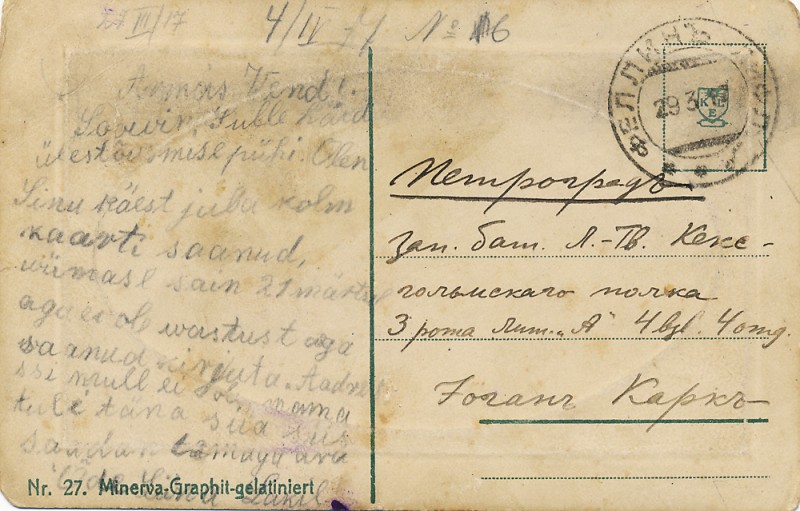 27/III/17
4/IV 17 № 16
Armas Vend!
Soovin Sulle häid
ülestõusmise pühi. Olen
Sinu käest juba kolm
kaarti saanud,
wiimase sain 21 märtsil
aga ei ole wastust aga
saanud kirjuta. Aadre
ssi mull ei ole
tuli täna siia siis
saadan tamaga ära
Õde
Nr. 27. Minerva-Graphit-gelatiniert
ФЕЛЛИНЪ
29 3
K E
Петроградъ
зап. бат. Л.-Гв. Кекс-
гольмскаго полка
3 рота Лит. „А" 4 взв. 4 отд.
Іоганъ Каркъ